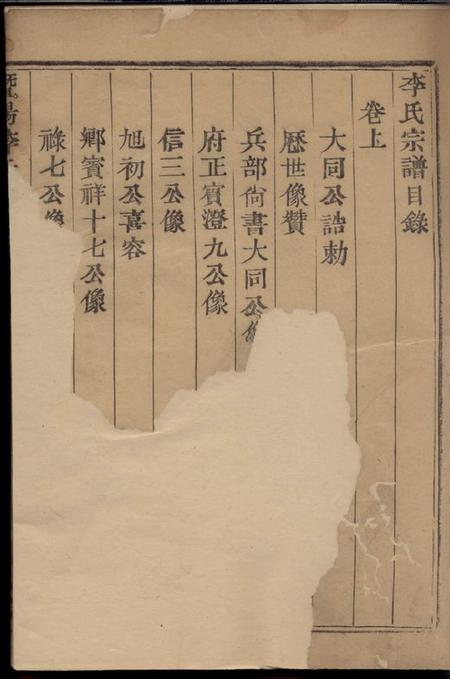 李氏宗譜目錄
卷上
大同公誥勅
歷世像贊
兵部尙書大同公像
府正賓澄九公像
信三公像
旭初公喜容
鄉賓祥十七公像
祿七公像